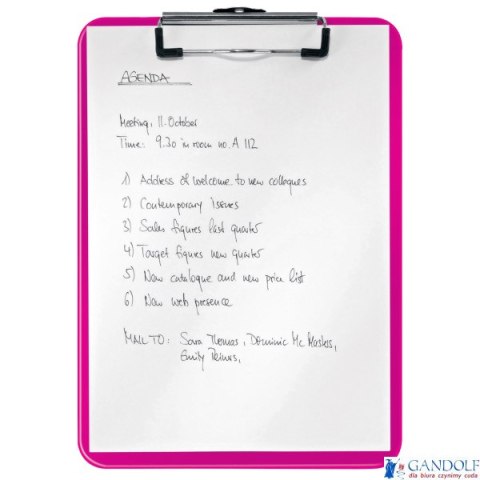 AGENDA
Meeting, 11. October
Time: 9.30 in room no. A 112
1) Address of welcome to new collegues
2) Contemporary issues
3) Sales figures last quarter
4) Target figures new quarter
5) New catalogue and new price list
6) New web presence
MAIL TO: Sara Thomas, Dominic Mc
Emily
GANDOLF
dla biura czynimy cuda